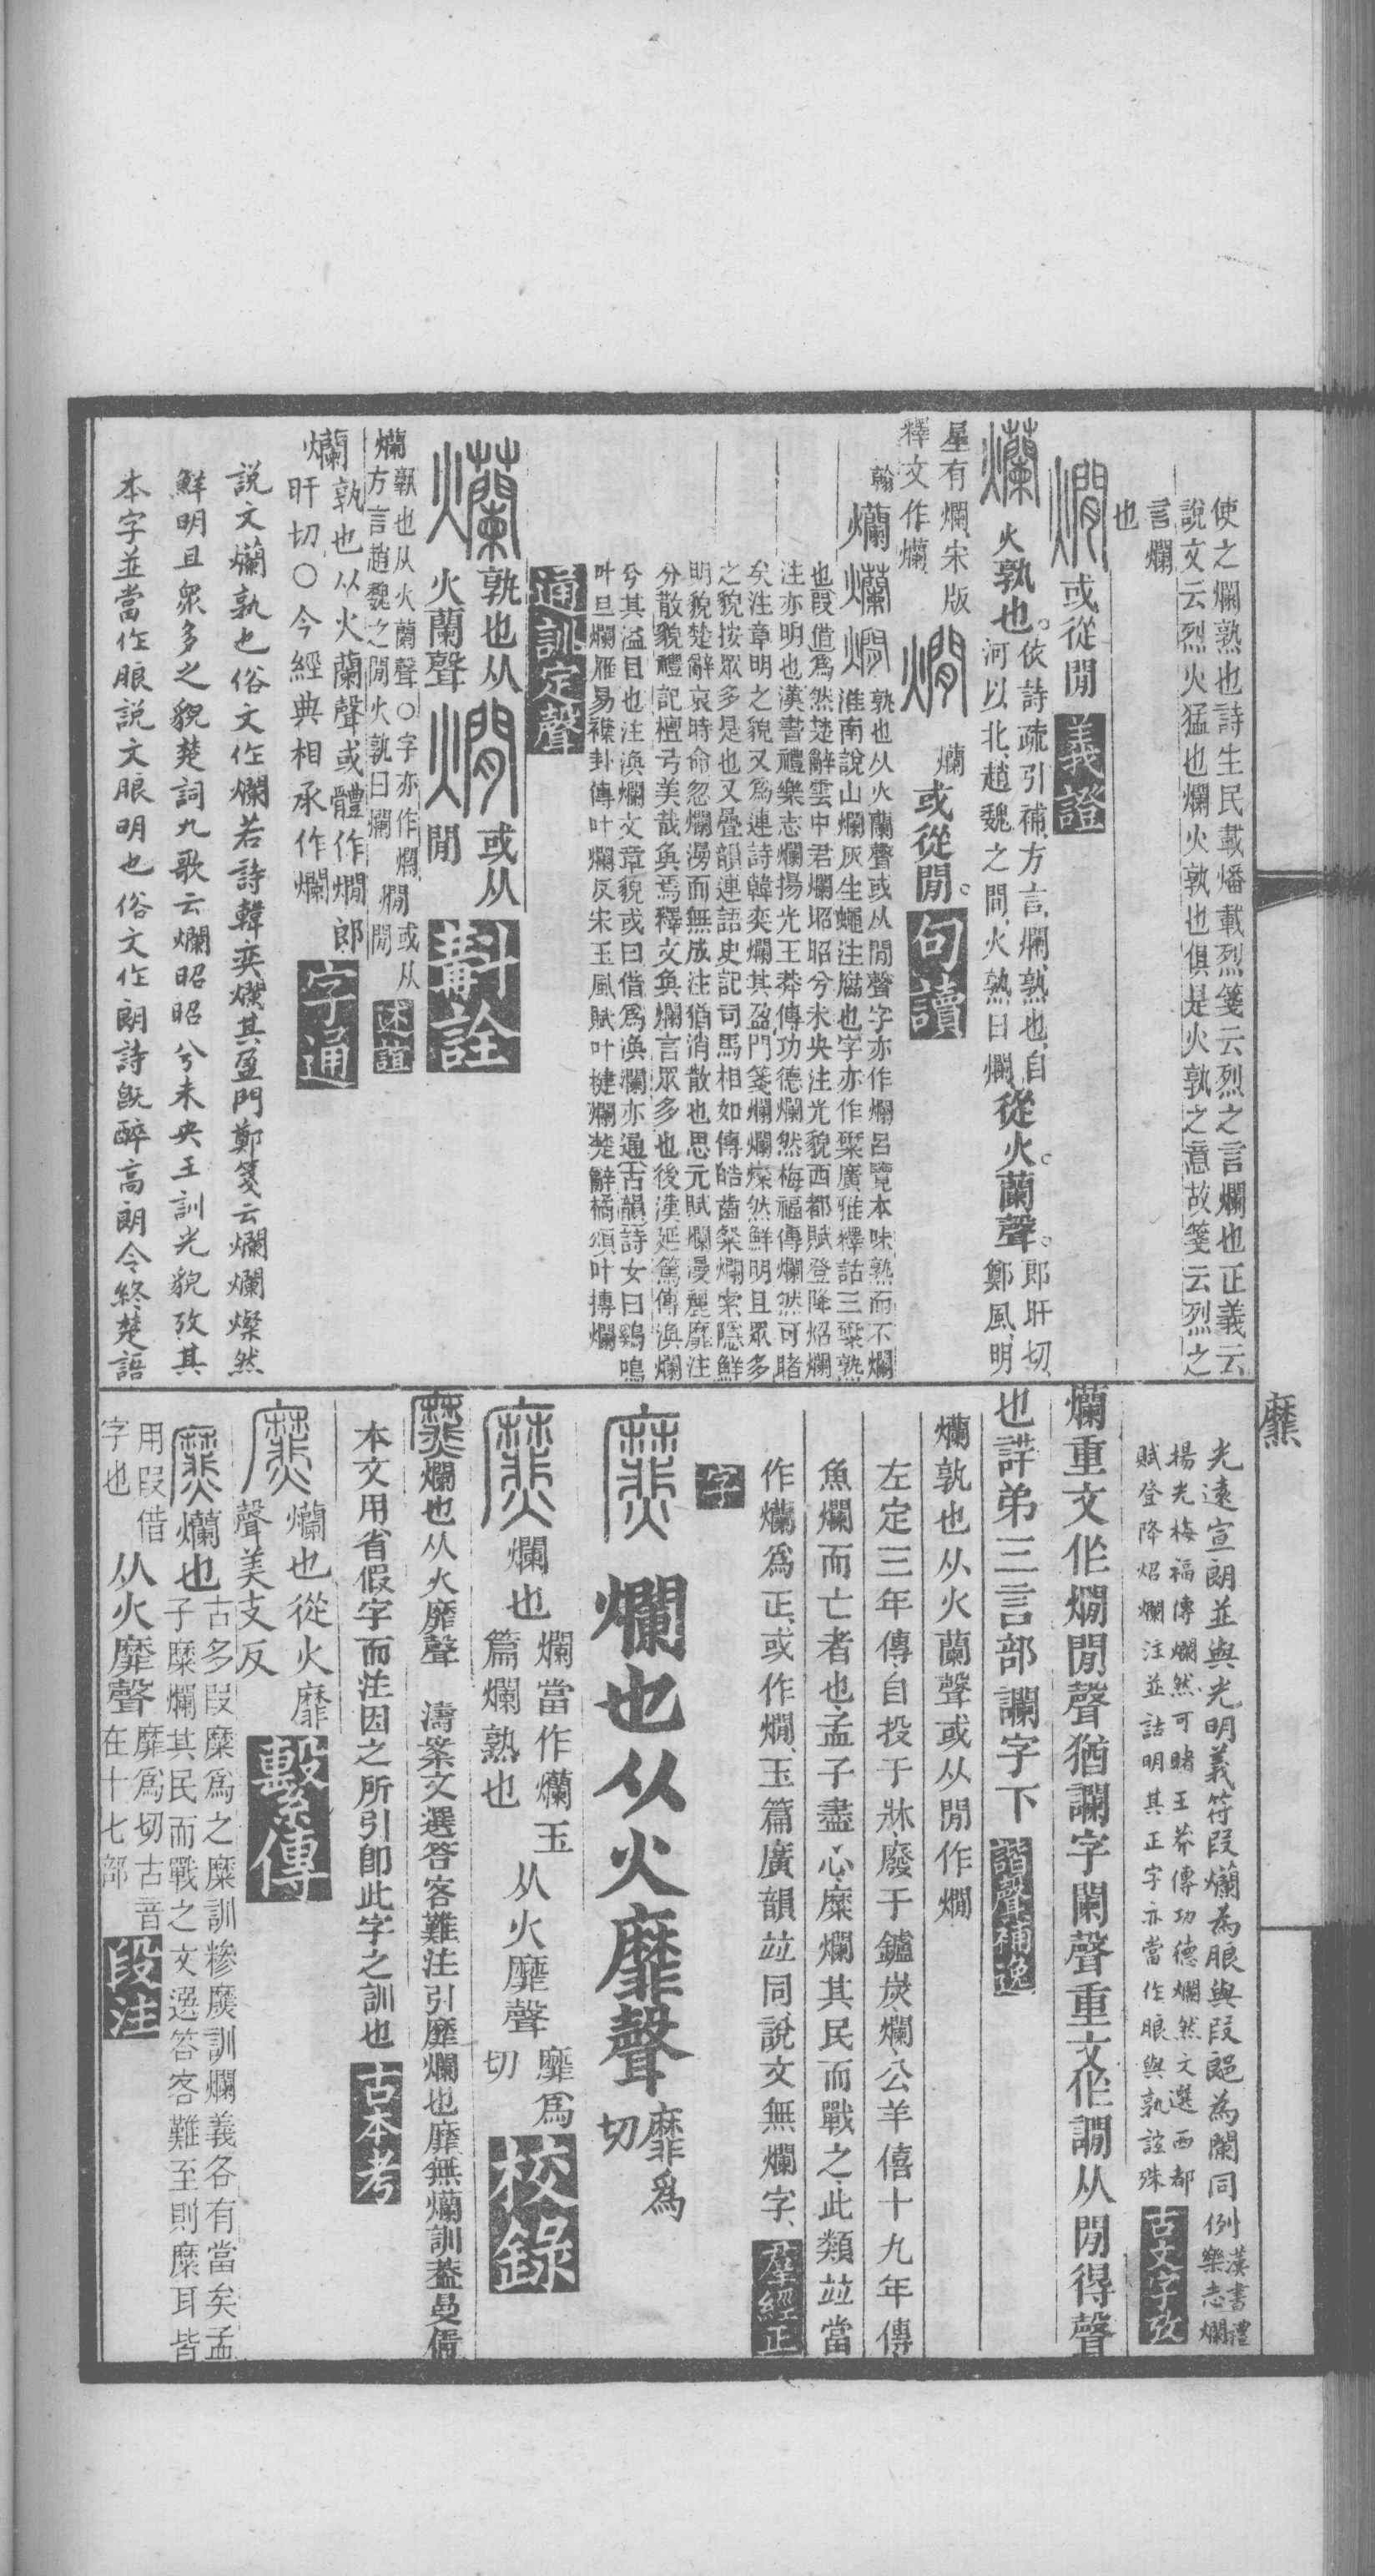 使之爛熟也詩生民載燔載烈箋云烈之言爛也正義云
說文云烈火猛也爛火孰也俱是火孰之意故箋云烈之
言爛
也
燗或從閒義證
爤火孰也。依詩疏引補、方言、爛、熟也、自
河以北、趙魏之間、火熟曰爛從火。蘭聲。郎旰切、
鄭風、明
星有爛、宋版
釋文作爤、燗爤或從閒。句讀
翰爛爤燗孰也从火蘭聲或从閒聲字亦作爛呂覽本味熟而不爛
淮南說山爛灰生蠅注腐也字亦作䊳廣雅釋詁三䊳熟
也叚借爲然楚辭雲中君爛昭昭兮未央注光貌西都賦登降炤爛
注亦明也漢書禮樂志爛揚光王莽傳功德爛然梅福傳爛然可睹
矣注章明之貌又爲連詩韓奕爛其盈門箋爛爛燦然鮮明且眾多
之貌按眾多是也又疊韻連語史記司馬相如傳皓齒粲爛索隱鮮
明貌楚辭哀時命忽爛漫而無成注猶消散也思元賦爛漫麗靡注
分散貌禮記檀弓美哉奐焉釋文奐爛言眾多也後漢延篤傳渙爛
兮其溢目也注渙爛文章貌或曰借爲渙爛亦通古韻詩女曰雞鳴
叶旦爛雁易襍卦傳叶爛反宋玉風賦叶揵爛楚辭橘頌叶摶爛
通訓定聲
爤孰也从
火蘭聲燗或从
閒斠詮
爤孰也从火蘭聲○字亦作爛燗或从
方言趙魏之閒火孰曰爛閒述誼
爤孰也从火蘭聲或體作燗郎
旰切○今經典相承作爛字通
說文爤孰也俗文作爛若詩韓奕爛其盈門鄭箋云爛爛燦然
鮮明且眾多之貌楚詞九歌云爛昭昭兮未央王訓光貌攷其
本字並當作朖說文朖明也俗文作朗詩旣醉高朗令終楚語
䊳
光遠宣朗並與光明義符叚爤為朖與叚䦨為闌同例漢書禮
樂志爛
揚光梅福傳爛然可睹王莽傳功德爛然文選西都
賦登降炤爛注並詁明其正字亦當作朖與孰誼殊古文字攷
爤重文作燗閒聲猶讕字闌聲重文作讇从閒得聲
也詳弟三言部讕字下諧聲補逸
爤孰也从火蘭聲或从閒作燗
左定三年傳、自投于牀、廢于鑪炭、爛、公羊僖十九年傳、
魚爛而亡者也、孟子盡心、糜爛其民而戰之、此類竝當
作爤爲正、或作燗、玉篇廣韻竝同、說文無爛字、羣經正
字
爢爛也从火靡聲靡爲
切
爢爛也爛當作爤玉
篇爛熟也从火靡聲靡爲
切校錄
爢爛也从火靡聲濤案文選答客難注引靡爛也靡無爤訓葢曼倩
本文用省假字而注因之所引卽此字之訓也古本考
爢爛也從火靡
聲美支反繫傳
爢爤也古多叚糜爲之糜訓糝爢訓爛義各有當矣孟
子糜爛其民而戰之文選答客難至則糜耳皆
用叚借
字也从火靡聲靡爲切古音
在十七部段注